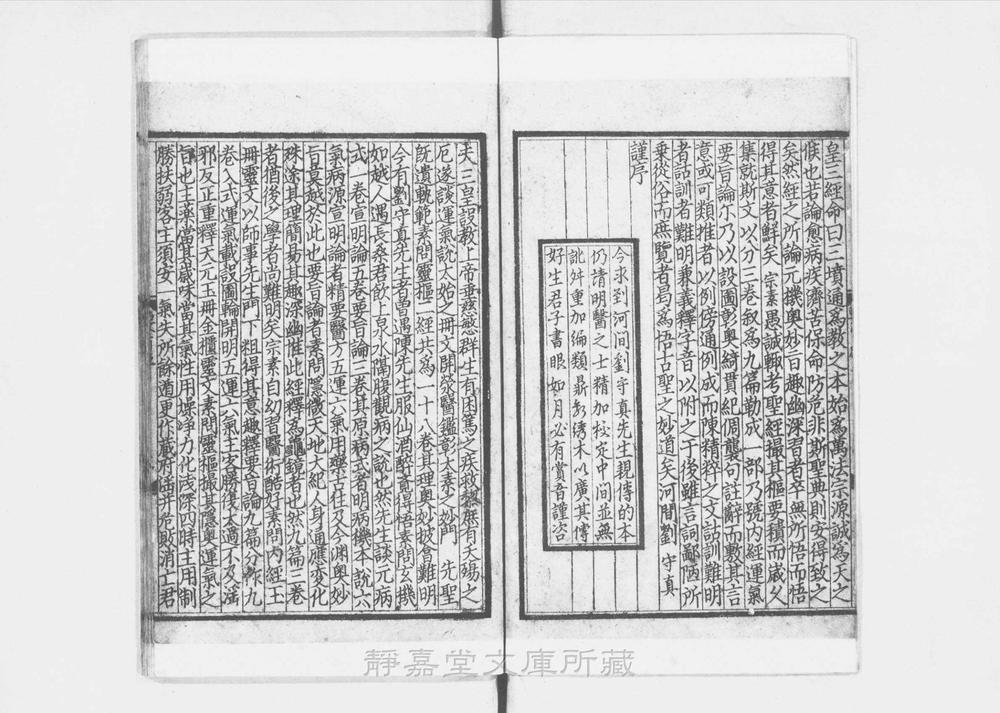 皇三經命曰三墳通爲教之本始爲萬法宗源誠爲天之
候也若論愈病疾濟苦保命防危非斯聖典則安得致之
矣然經之所論元機奧妙旨趣幽深習者卒無所悟而悟
得其意者鮮矣宗素愚誠輙考聖經撮其樞要積而歲久
集就斯文以分三卷叙爲九篇勒成一部乃號内經運氣
要旨論尓乃以設圖彰奧綺貫紀倜襲句註辭而敷其言
意或可類推者以例傍通例成而陳精粹之文詁訓難明
者詁訓者難明兼義釋字音以附之于後雖言詞鄙陋所
乗從俗而庶覽者昜爲悟古聖之妙道矣河間劉守真
謹序
今求到河間劉守真先生親傳的本
仍請明醫之士精加校定中間並無
訛舛重加編類鼎新綉木以廣其傳
好生君子書眼如月必有賞音謹咨
夫三皇設教上帝垂慈愍群生有困篤之疾救黎庶有夭殤之
厄遂談運氣說太始之冊文開熒醫鑑彰太素之妙門先聖
旣遺軌範素問靈樞二經共爲一十八卷其理奧妙披會難明
今有劉守真先生者曽遇陳先生服仙酒醉覺得悟素問玄機
如越人遇長桑君飲上泉水隔腹觀病之說也然先生談元病
式一卷宣明論五卷要旨論三卷其原病式者明病機本說六
氣病源宣明論者精要醫方五運六氣用藥古在及今淵奧妙
旨莫越於此也要旨論者素問隱微天地大紀人身通應変化
殊途其理簡昜其趣深幽惟此經釋爲龜鏡者也然九篇三卷
者猶後之學者尚難明矣宗素自幼習醫術酷好素問内經玉
冊靈文以師事先生門下粗得其意趣釋要旨論九篇分作九
卷入式運氣載設圖輪開明五運六氣主客勝復太過不及淫
邪反正重釋天元玉冊金櫃靈文素問靈樞撮其隱奧運氣之
旨也主藥當其歲味當其氣性用燥靜力化浅深四時主用制
勝扶弱客主須安一氣失所餘遁更作藏府淫并危敗消亡君
靜嘉堂文庫所藏